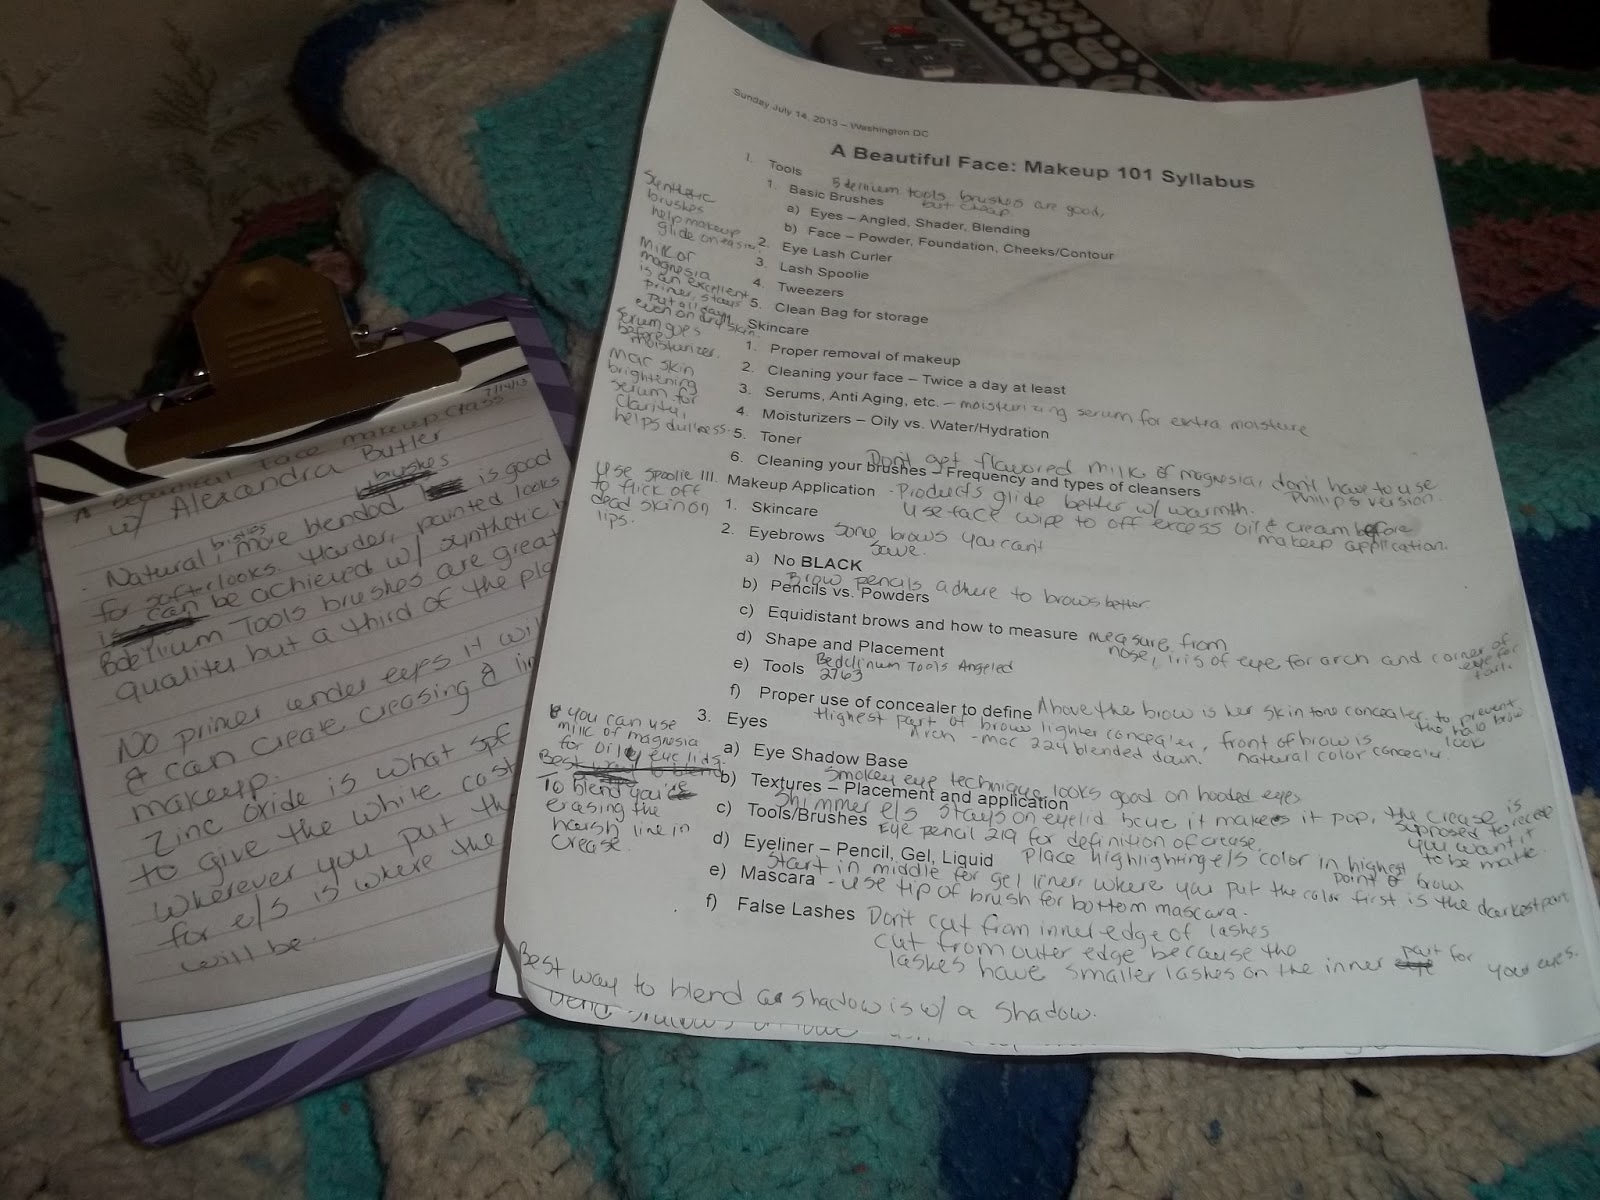 A Beautiful Face makeup class 7/14/13
w/ Alexandra Butler
brushes
Natural bristles, more blended is good
for softer looks. Harder, painted looks
can be achieved w/ synthetic
Bdellium Tools brushes are great
quality but a third of the
No primer under eyes it will
& can create creasing &
makeup.
Zinc oxide is what spf
to give the white cast
wherever you put the
for e/s is where the
will be.
Sunday July 14, 2013 – Washington DC
A Beautiful Face: Makeup 101 Syllabus
I. Tools
Bdellium tools brushes are good,
but cheap.
1. Basic Brushes
a) Eyes – Angled, Shader, Blending
b) Face – Powder, Foundation, Cheeks/Contour
2. Eye Lash Curler
3. Lash Spoolie
4. Tweezers
5. Clean Bag for storage
Synthetic
brushes
help makeup
glide on easier
Milk of
magnesia
is an excellent
primer, stays
put all day,
even on dry skin.
Serum goes
before
moisturizer.
Mac skin
brightening
serum for
clarity,
helps dullness.
Skincare
1. Proper removal of makeup
2. Cleaning your face – Twice a day at least
3. Serums, Anti Aging, etc. – moisturizing serum for extra moisture
4. Moisturizers – Oily vs. Water/Hydration
5. Toner
Don't get flavored milk of magnesia, don't have to use
Philip's version.
6. Cleaning your brushes – Frequency and types of cleansers
Use spoolie
to flick off
dead skin on
lips.
III. Makeup Application - Products glide better w/ warmth.
Use face wipe to off excess oil & cream before
makeup application.
1. Skincare
2. Eyebrows Some brows you can't
save.
a) No BLACK
Brow pencils adhere to brows better
b) Pencils vs. Powders
c) Equidistant brows and how to measure measure from
nose, iris of eye for arch and corner of
eye for
tail.
d) Shape and Placement
e) Tools Bedellinum Tools Angeled
2763
f) Proper use of concealer to define Above the brow is her skin tone concealer to prevent
the halo brow
look
Highest part of brow lighter concealer, front of brow is
natural color concealer.
Arch - Mac 224 blended down.
3. Eyes
a) Eye Shadow Base
Smokey eye technique looks good on hooded eyes
b) Textures – Placement and application
Shimmer e/s stays on eyelid bcuz it makes it pop, the crease is
supposed to recede
you want it
to be matte.
c) Tools/Brushes Eye pencil 219 for definition of crease.
d) Eyeliner – Pencil, Gel, Liquid Place highlighting e/s color in highest
point of brow
Start in middle for gel liner, where you put the color first is the darkest part
e) Mascara - use tip of brush for bottom mascara.
f) False Lashes Don't cut from inner edge of lashes
cut from outer edge because the
lashes have smaller lashes on the inner part for your eyes.
you can use
milk of magnesia
for oily eye lids.
Best way to blend
To blend you're
erasing the
harsh line in
crease.
Best way to blend a shadow is w/ a shadow.